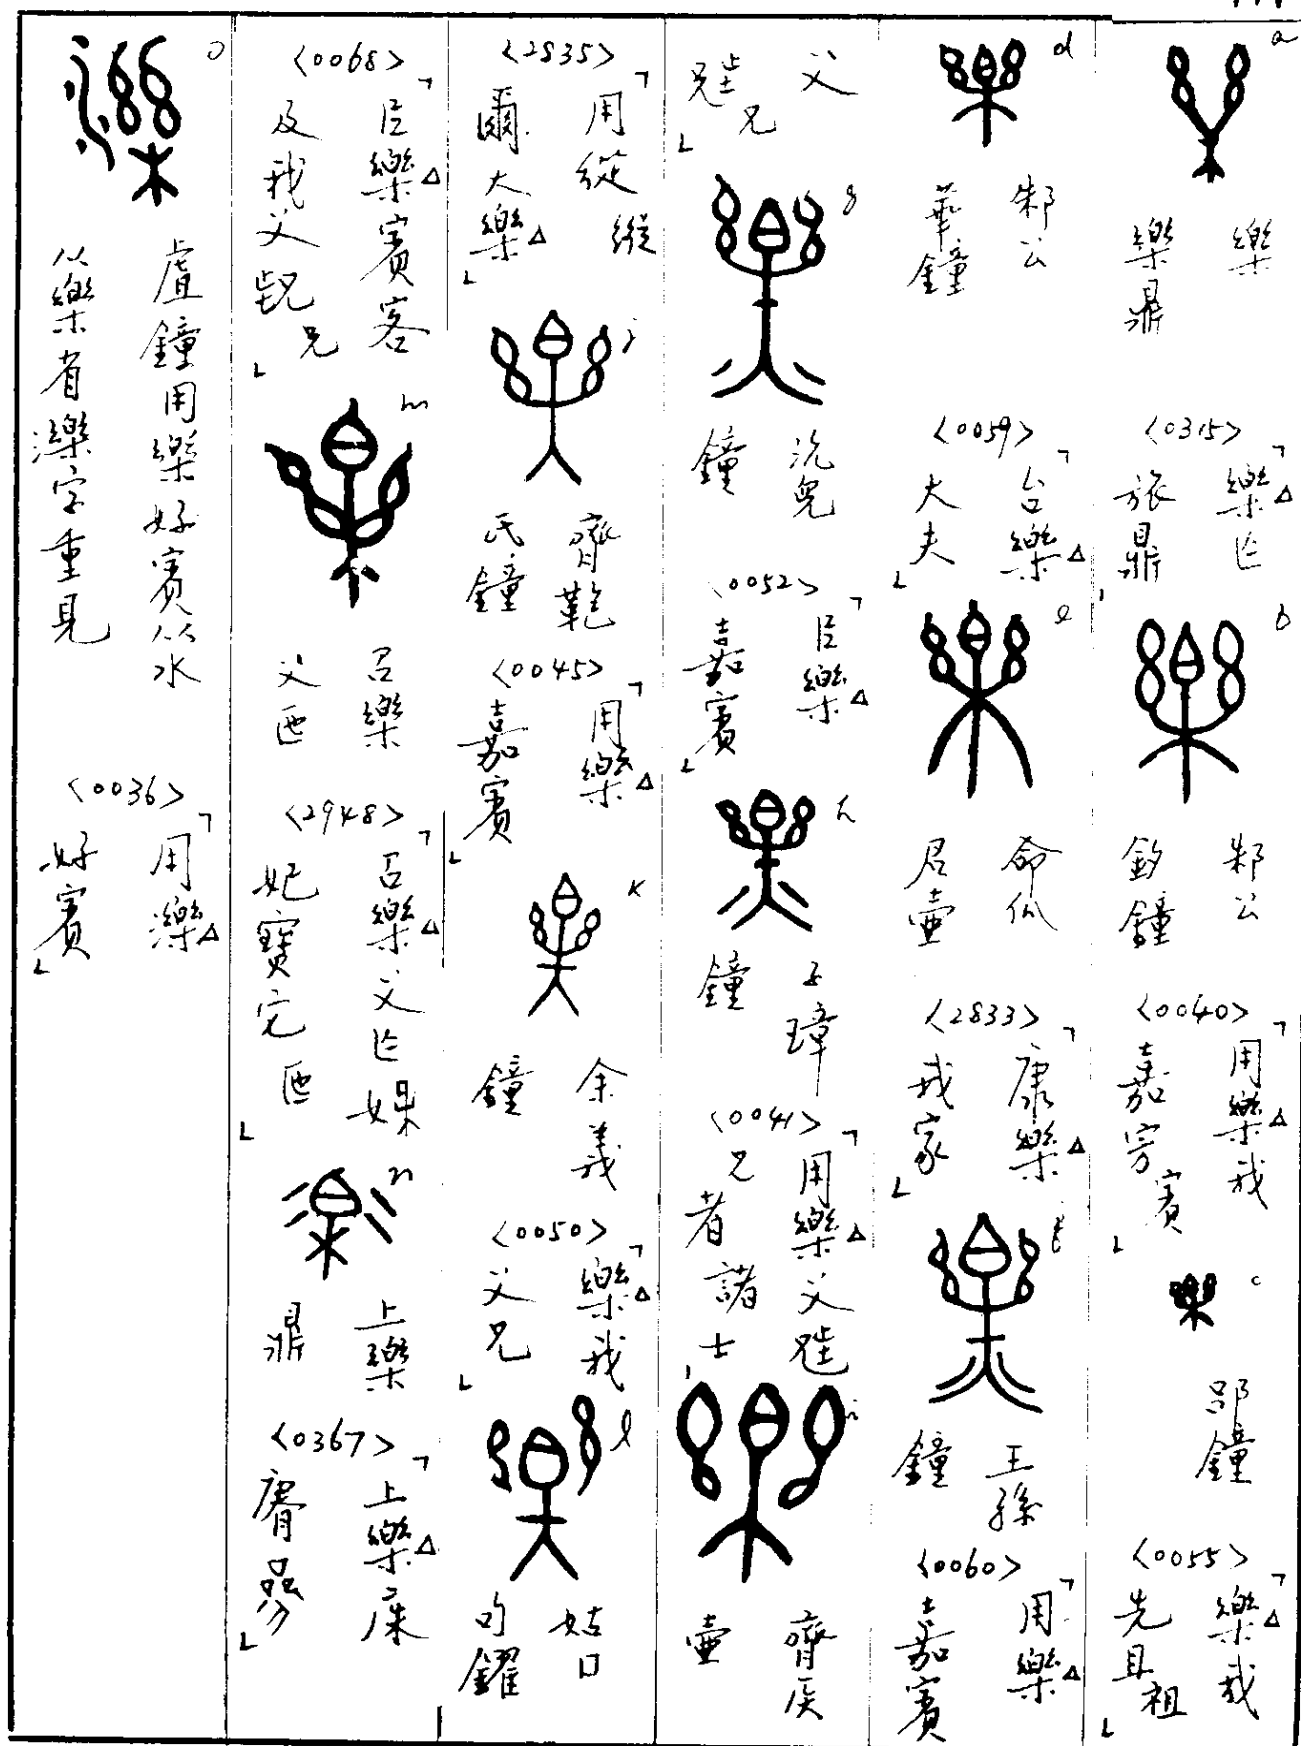 a
樂
樂鼎
<0315>
「樂△乍
旅鼎」
b
邾公
釛鐘
<0040>
「用樂△我
嘉宾賓」
c
郘鐘
<0055>
「樂△我
先且祖」
d
邾公
華鐘
<0059>
「台樂△
大夫」
e
命瓜
君壷
<2833>
「康樂△
我家」
f
王孫
鐘
<0060>
「用樂△
嘉賓
父
兄」
g
沇兒
鐘
<0052>
「㠯樂△
嘉賓」
h
子璋
鐘
<0041>
「用樂△父
兄者諸士」
i
齊侯
壷
<2835>
「用從縱
爾大樂△」
j
齊鞄
氏鐘
<0045>
「用樂△
嘉賓」
k
余義
鐘
<0050>
「樂△我
父兄」
l
姑口
句鑃
<0068>
「㠯樂△賓客
及我父兄」
m
召樂
父匜
<2948>
「召樂△父乍
妃寶它匜」
n
上樂
鼎
<0367>
「上樂△
」
o
虘鐘用樂好賓从水
从樂省濼字重見
<0036>
「用濼△
好賓」